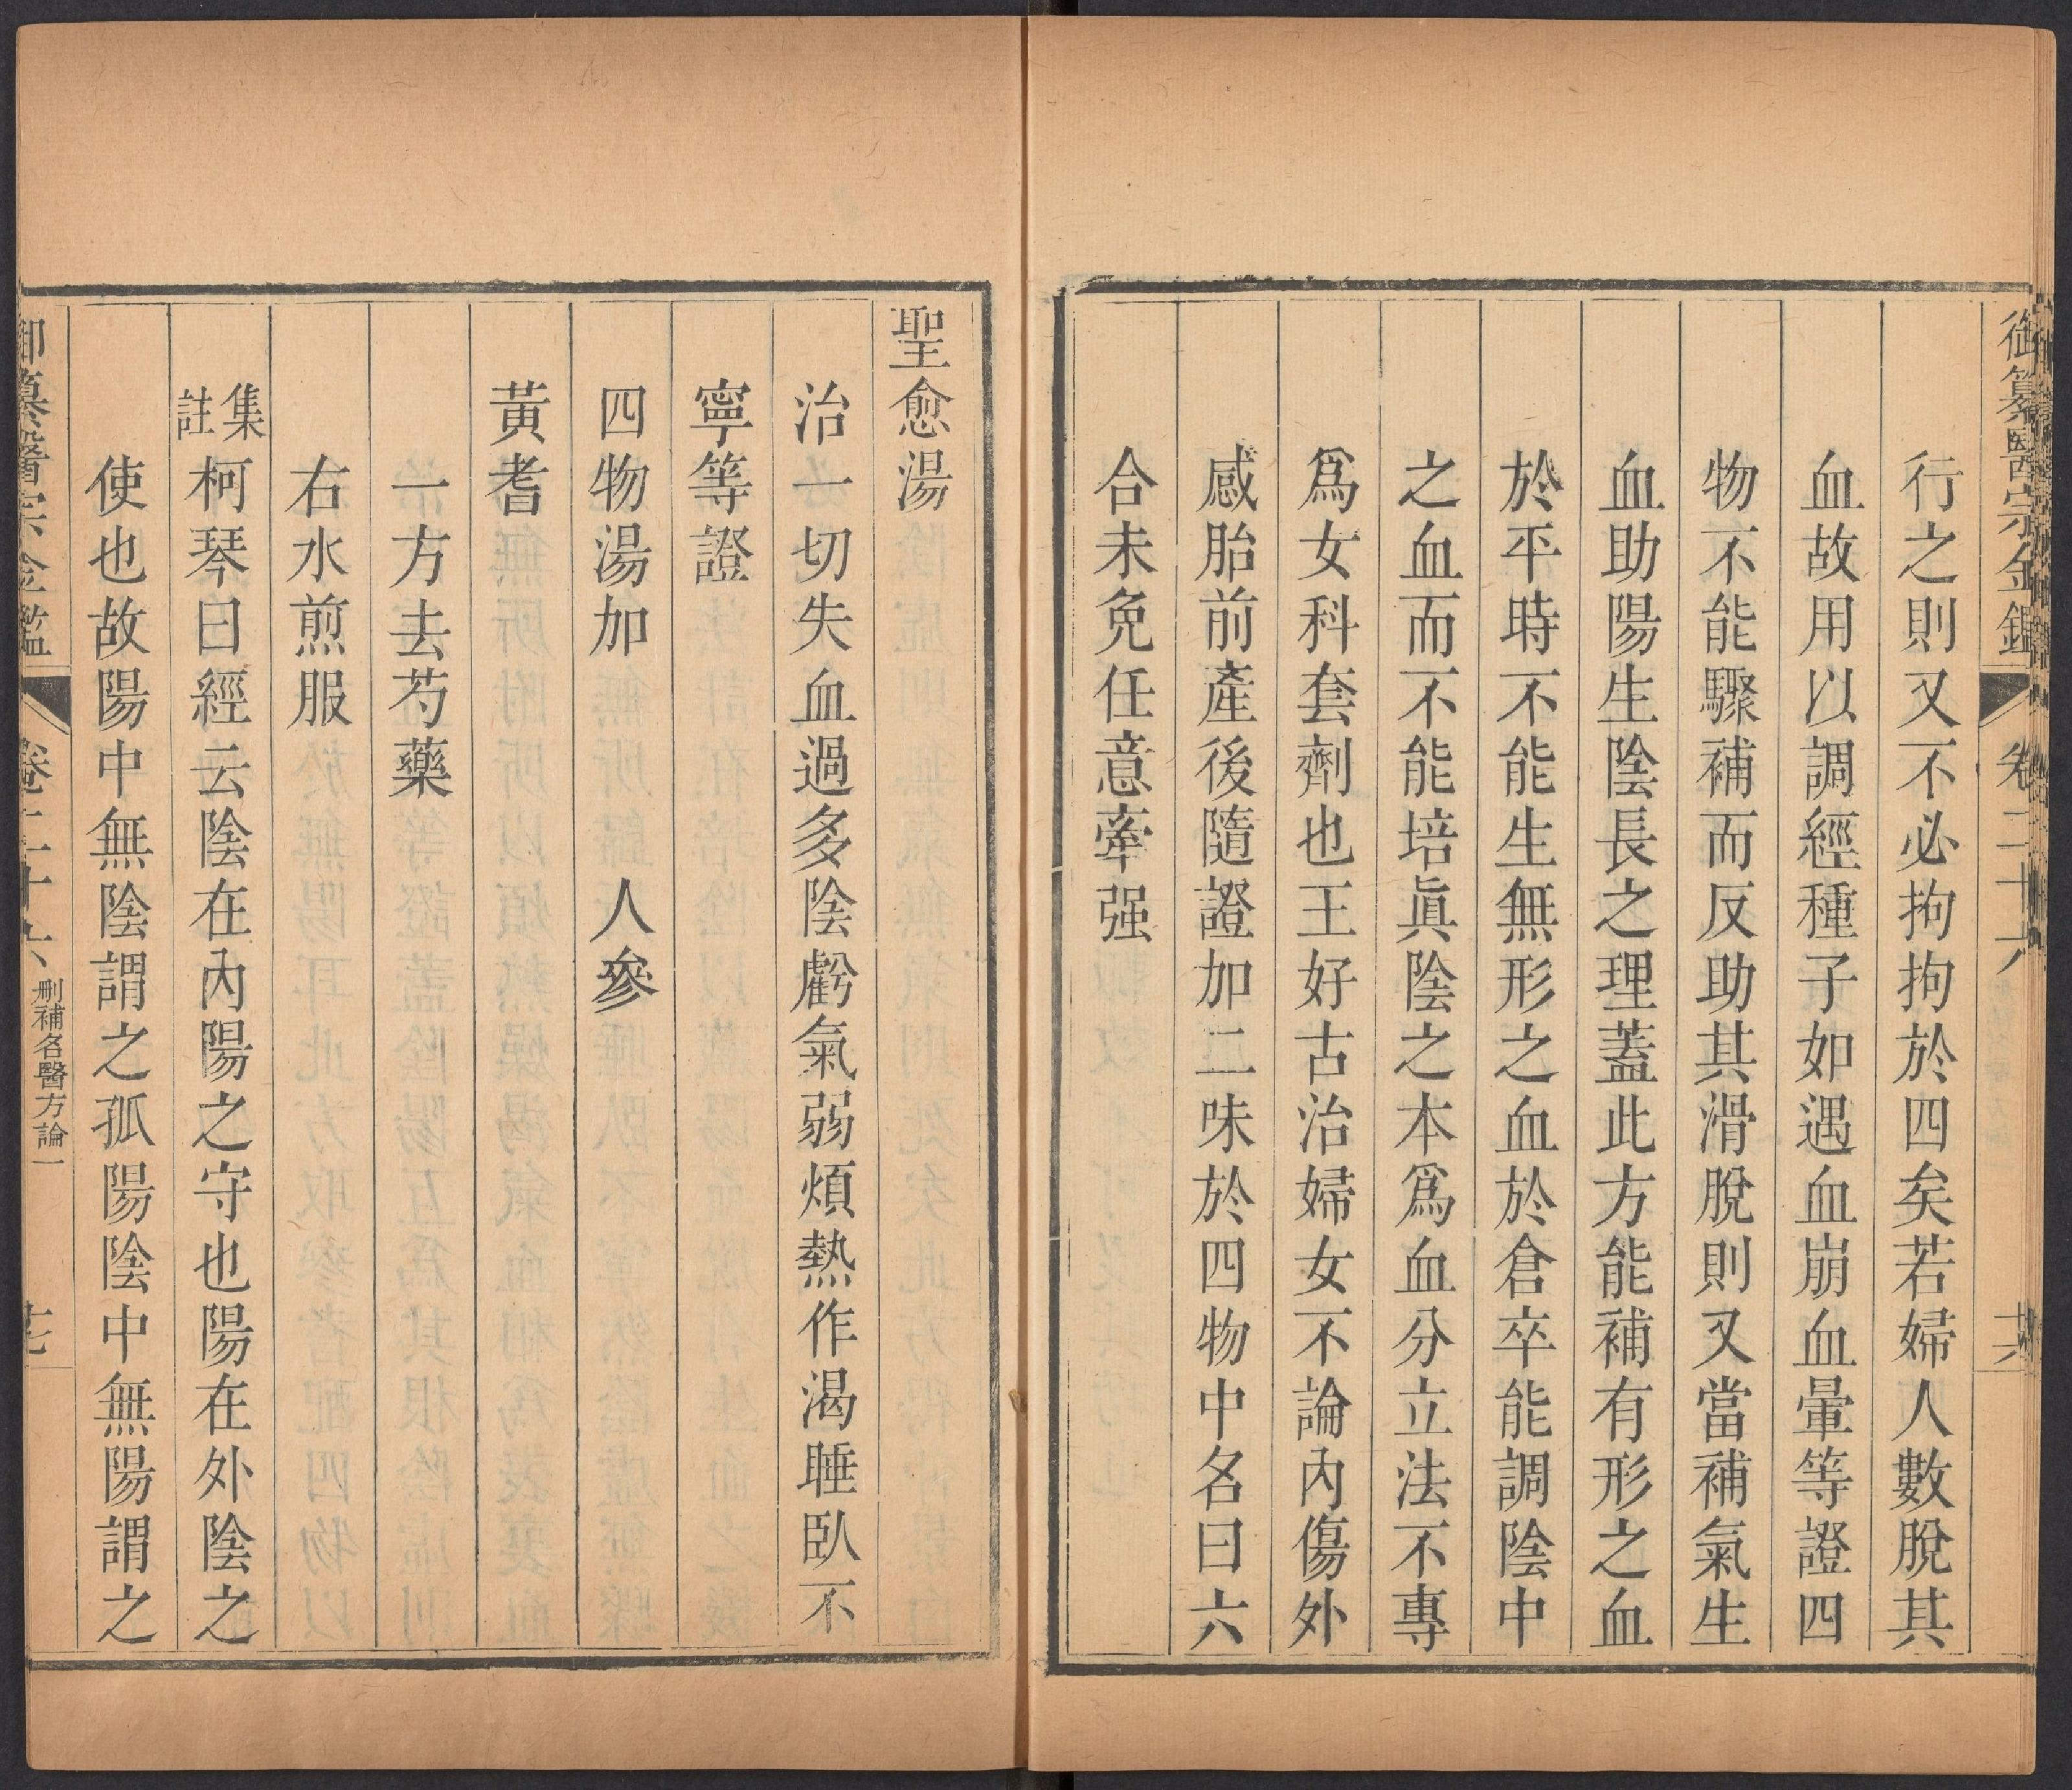 御纂醫宗金鑑 卷二十六 十六
行之則又不必拘拘於四矣若婦人數脫其
血故用以調經種子如遇血崩血暈等證四
物不能驟補而反助其滑脫則又當補氣生
血助陽生陰長之理蓋此方能補有形之血
於平時不能生無形之血於倉卒能調陰中
之血而不能培眞陰之本爲血分立法不專
爲女科套劑也王好古治婦女不論內傷外
感胎前產後隨證加二味於四物中名曰六
合未免任意牽强
聖愈湯
治一切失血過多陰虧氣弱煩熱作渴睡臥不
寧等證
四物湯加 人參
黃耆
一方去芍藥
右水煎服
集註柯琴曰經云陰在內陽之守也陽在外陰之
使也故陽中無陰謂之孤陽陰中無陽謂之
御纂醫宗金鑑 卷二十六 刪補名醫方論一 十七